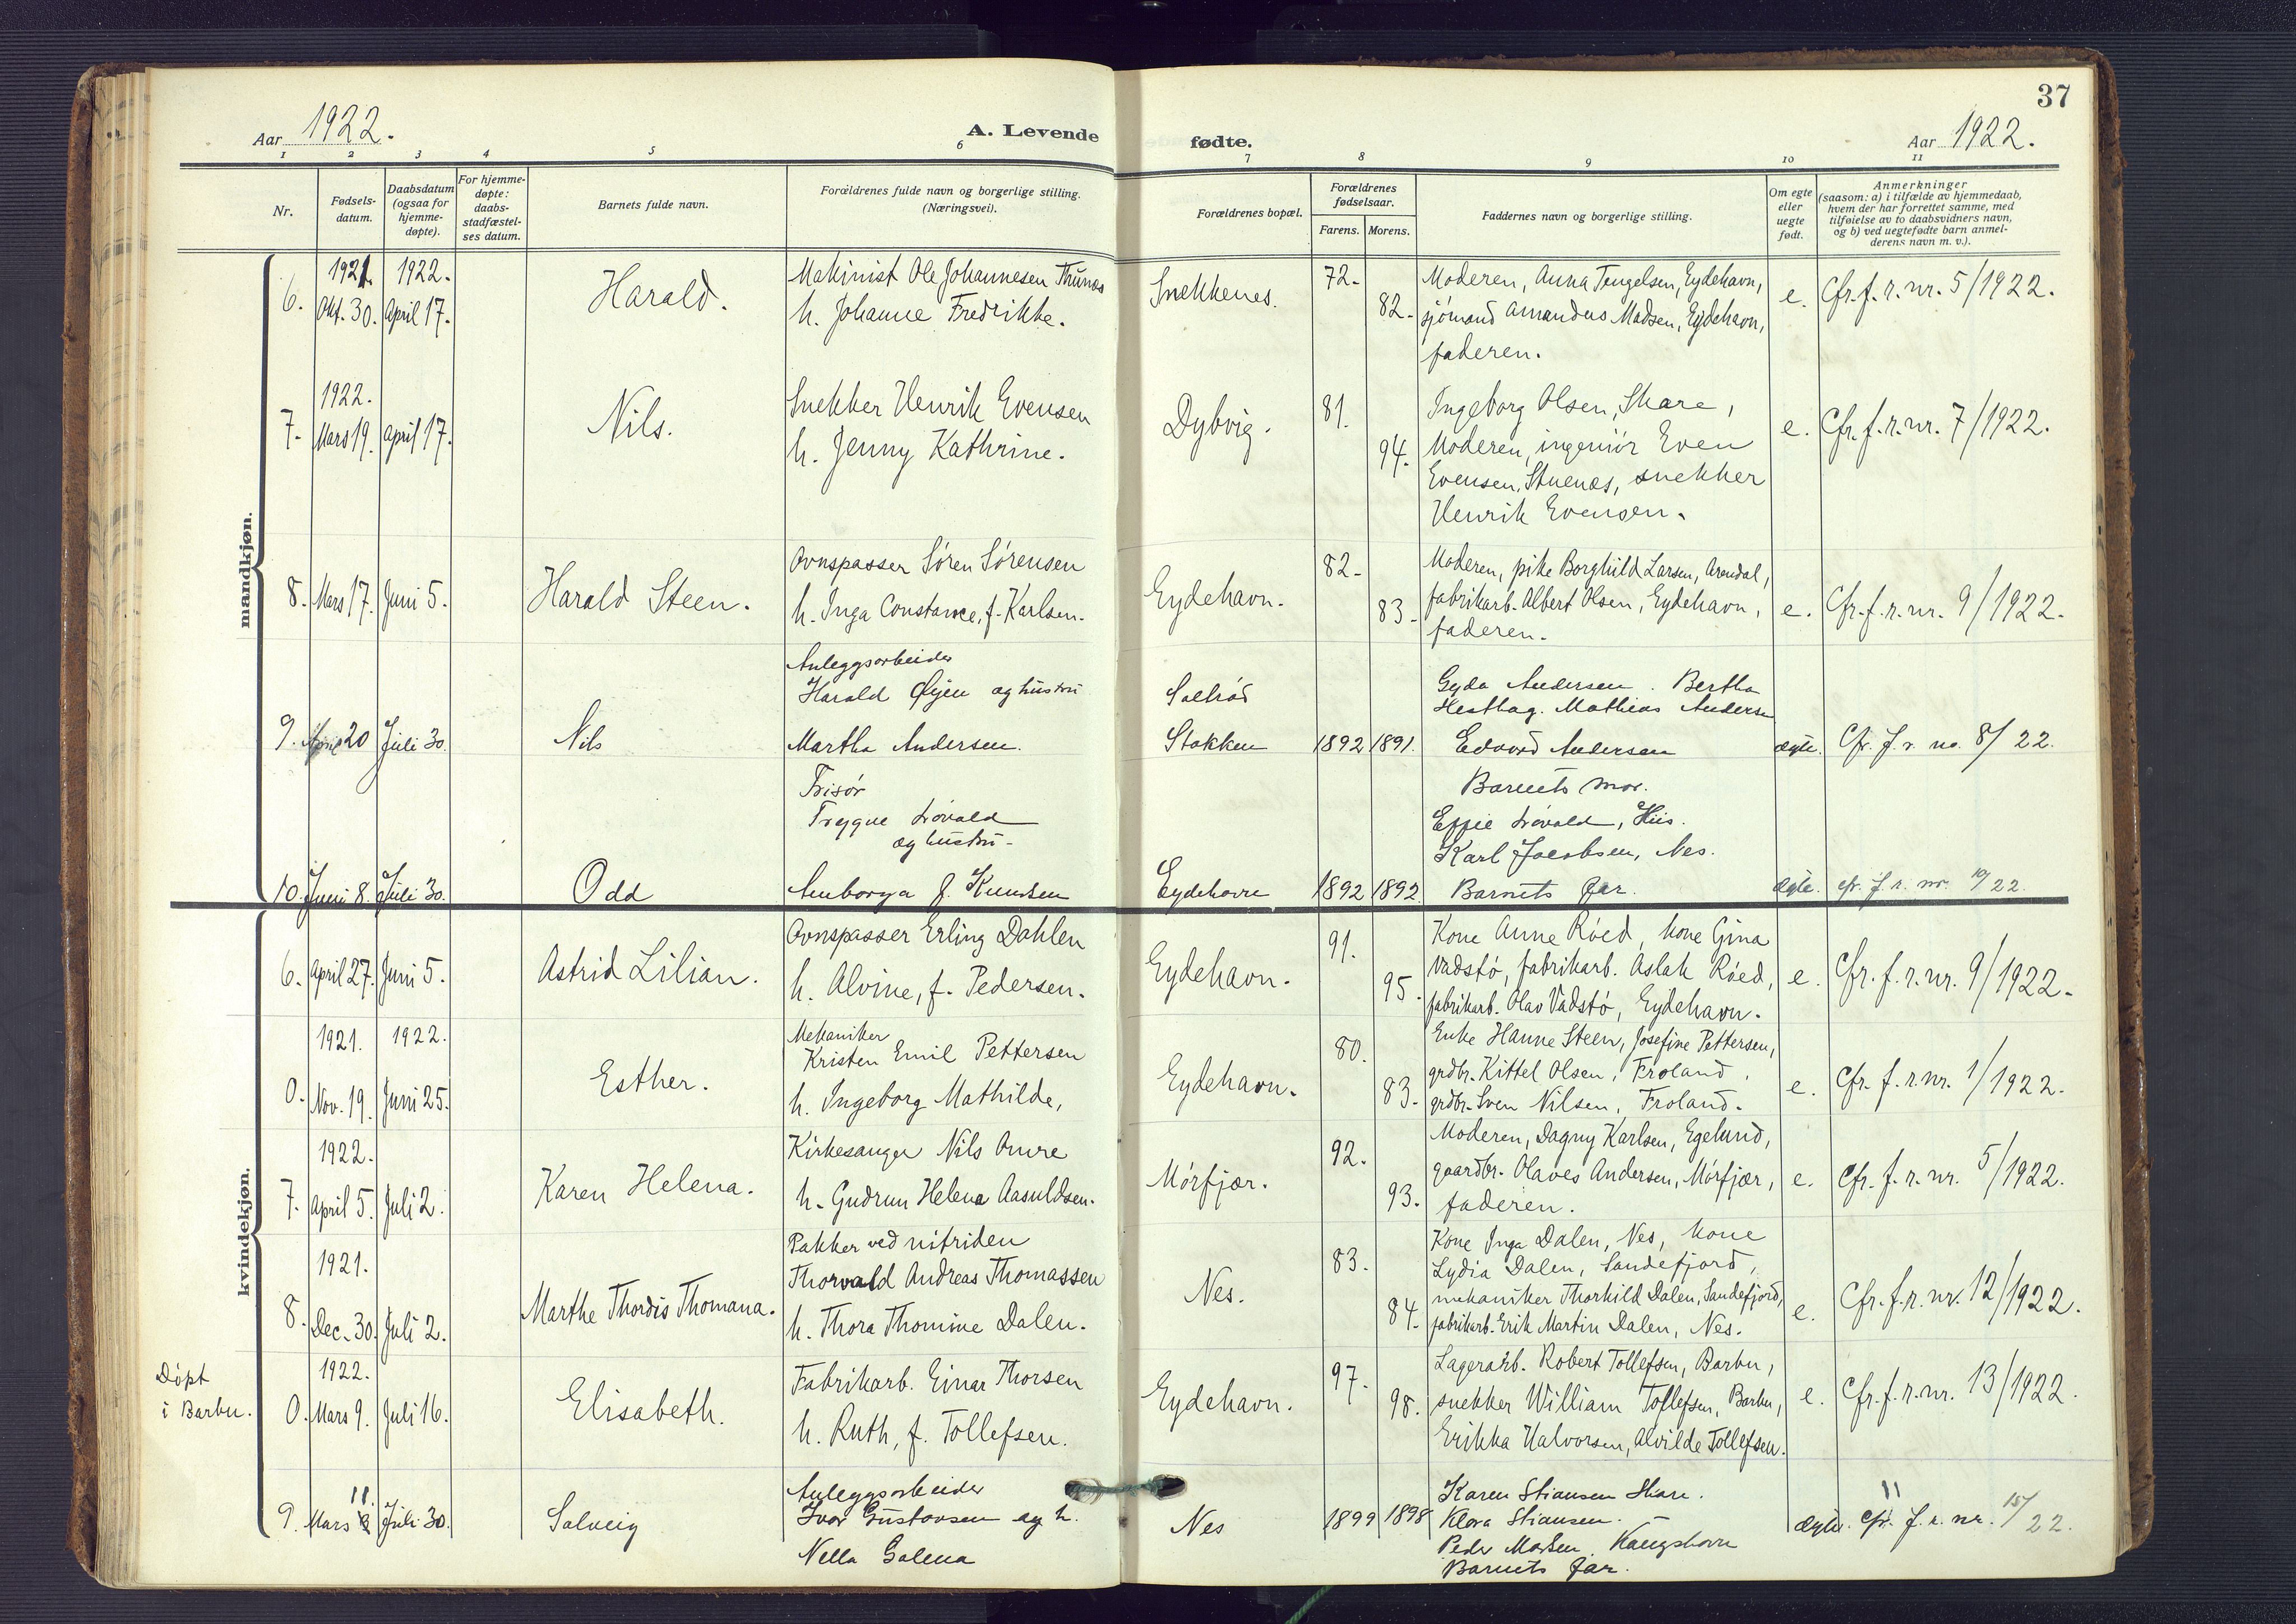 37
Aar 1922. A. Levende fødte. Aar 1922.
1 2 3 4 5 6 7 8 9 10 11
Nr.
Fødsels-
datum.
Daabsdatum
(ogsaa for
hjemme-
døpte).
For hjemme-
døpte:
daabs-
stadfæstel-
ses datum.
Barnets fulde navn.
Forældrenes fulde navn og borgerlige stilling.
(Næringsvei).
Forældrenes bopæl.
Forældrenes
fødselsaar.
Farens. Morens.
Faddernes navn og borgerlige stilling.
Om egte
eller
uegte
født.
Anmerkninger
(saasom: a) i tilfælde av hjemmedaab,
hvem der har forrettet samme, med
tilføielse av to daabsvidners navn,
og b) ved uegtefødte barn anmel-
derens navn m. v.).
mandkjøn.
6.
1921.
Okt. 30.
1922.
April 17.
Harald.
Makinist Ole Johannesen Thunæs
h. Johanne Fredrikke.
Snekkenes.
72.
82.
Moderen, Anna Tengelsen, Eydehavn,
sjömand Amandus Madsen, Eydehavn,
faderen.
e.
Cfr. f. r. nr. 5/1922.
7.
1922.
Mars 19.
April 17.
Nils.
Snekker Henrik Evensen
h. Jenny Kathrine.
Dybvig.
81.
94.
Ingeborg Olsen, Skare,
Moderen, ingeniör Even
Evensen, Stuenæs, snekker
Henrik Evensen.
e.
Cfr. f. r. nr. 7/1922.
8.
Mars 17.
Juni 5.
Harald Steen.
Ovnspasser Sören Sörensen
h. Inga Constance, f. Karlsen.
Eydehavn.
82.
83.
Moderen, pike Borghild Larsen, Arendal,
fabrikarb. Albert Olsen, Eydehavn,
faderen.
e.
Cfr. f. r. nr. 9/1922.
9.
April 20
Juli 30.
Nils
Anleggsarbeider
Harald Øyen og hustru
Martha Andersen.
Saltröd
Stokken
1892 1891.
Gyda Andersen. Bertha
Hesthag. Mathias Andersen
Edvard Andersen
ægte.
Cfr. f. r. no. 8/22.
10.
Juni 8.
Juli 30.
Odd
Frisör
Trygve Lövald
og hustru
Amborga f. Knudsen
Eydehavn
1892 1892.
Barnets mor.
Effie Lövald, Hiis.
Karl Jacobsen, Nes.
Barnets far.
ægte.
cfr. f. r. nr. 10/22.
kvindekjøn.
6.
April 27.
Juni 5.
Astrid Lilian.
Ovnspasser Erling Dahlen
h. Alvine, f. Pedersen.
Eydehavn.
91.
95.
Kone Anne Röed, kone Gina
Vadstö, fabrikarb. Aslak Röed,
fabrikarb. Olav Vadstö, Eydehavn.
e.
Cfr. f. r. nr. 9/1922.
0.
1921.
Nov. 19.
1922.
Juni 25.
Esther.
Mekaniker
Kristen Emil Pettersen
h. Ingeborg Mathilde,
Eydehavn.
80.
83.
Enke Hanne Steen, Josefine Pettersen,
grdbr. Kittel Olsen, Froland,
grdbr. Sven Nilsen, Froland.
e.
Cfr. f. r. nr. 1/1922.
7.
1922.
April 5.
Juli 2.
Karen Helena.
Kirkesanger Nils Omre
h. Gudrun Helena Aasuldsen.
Mörfjær.
92.
93.
Moderen, Dagny Karlsen, Egelund,
gaardbr. Olaves Andersen, Mörfjær,
faderen.
e.
Cfr. f. r. nr. 5/1922.
8.
1921.
Dec. 30.
Juli 2.
Marthe Thordis Thomana.
Pakker ved nitriden
Thorvald Andreas Thomassen
h. Thora Thomine Dalen.
Nes.
83.
84.
Kone Inga Dalen, Nes, kone
Lydia Dalen, Sandefjord,
mekaniker Thorhild Dalen, Sandefjord,
fabrikarb. Erik Martin Dalen, Nes.
e.
Cfr. f. r. nr. 12/1922.
Döpt
i Barbu.
0.
1922.
Mars 9.
Juli 16.
Elisabeth.
Fabrikarb. Einar Thorsen
h. Ruth, f. Tollefsen.
Eydehavn.
97.
98.
Lagerarb. Robert Tollefsen, Barbu,
snekker William Tollefsen, Barbu,
Erikka Halvorsen, Alvilde Tollefsen.
e.
Cfr. f. r. nr. 13/1922.
9.
Mars 11.
Juli 30.
Solveig
Anleggsarbeider
Ivar Gustavsen og h.
Nella Galena
Nes
1899 1898
Karen Stiansen Skare.
Klara Stiansen.
Peder Madsen. Kongshavn
Barnets far.
ægte.
cfr. f. r. nr. 15/22.